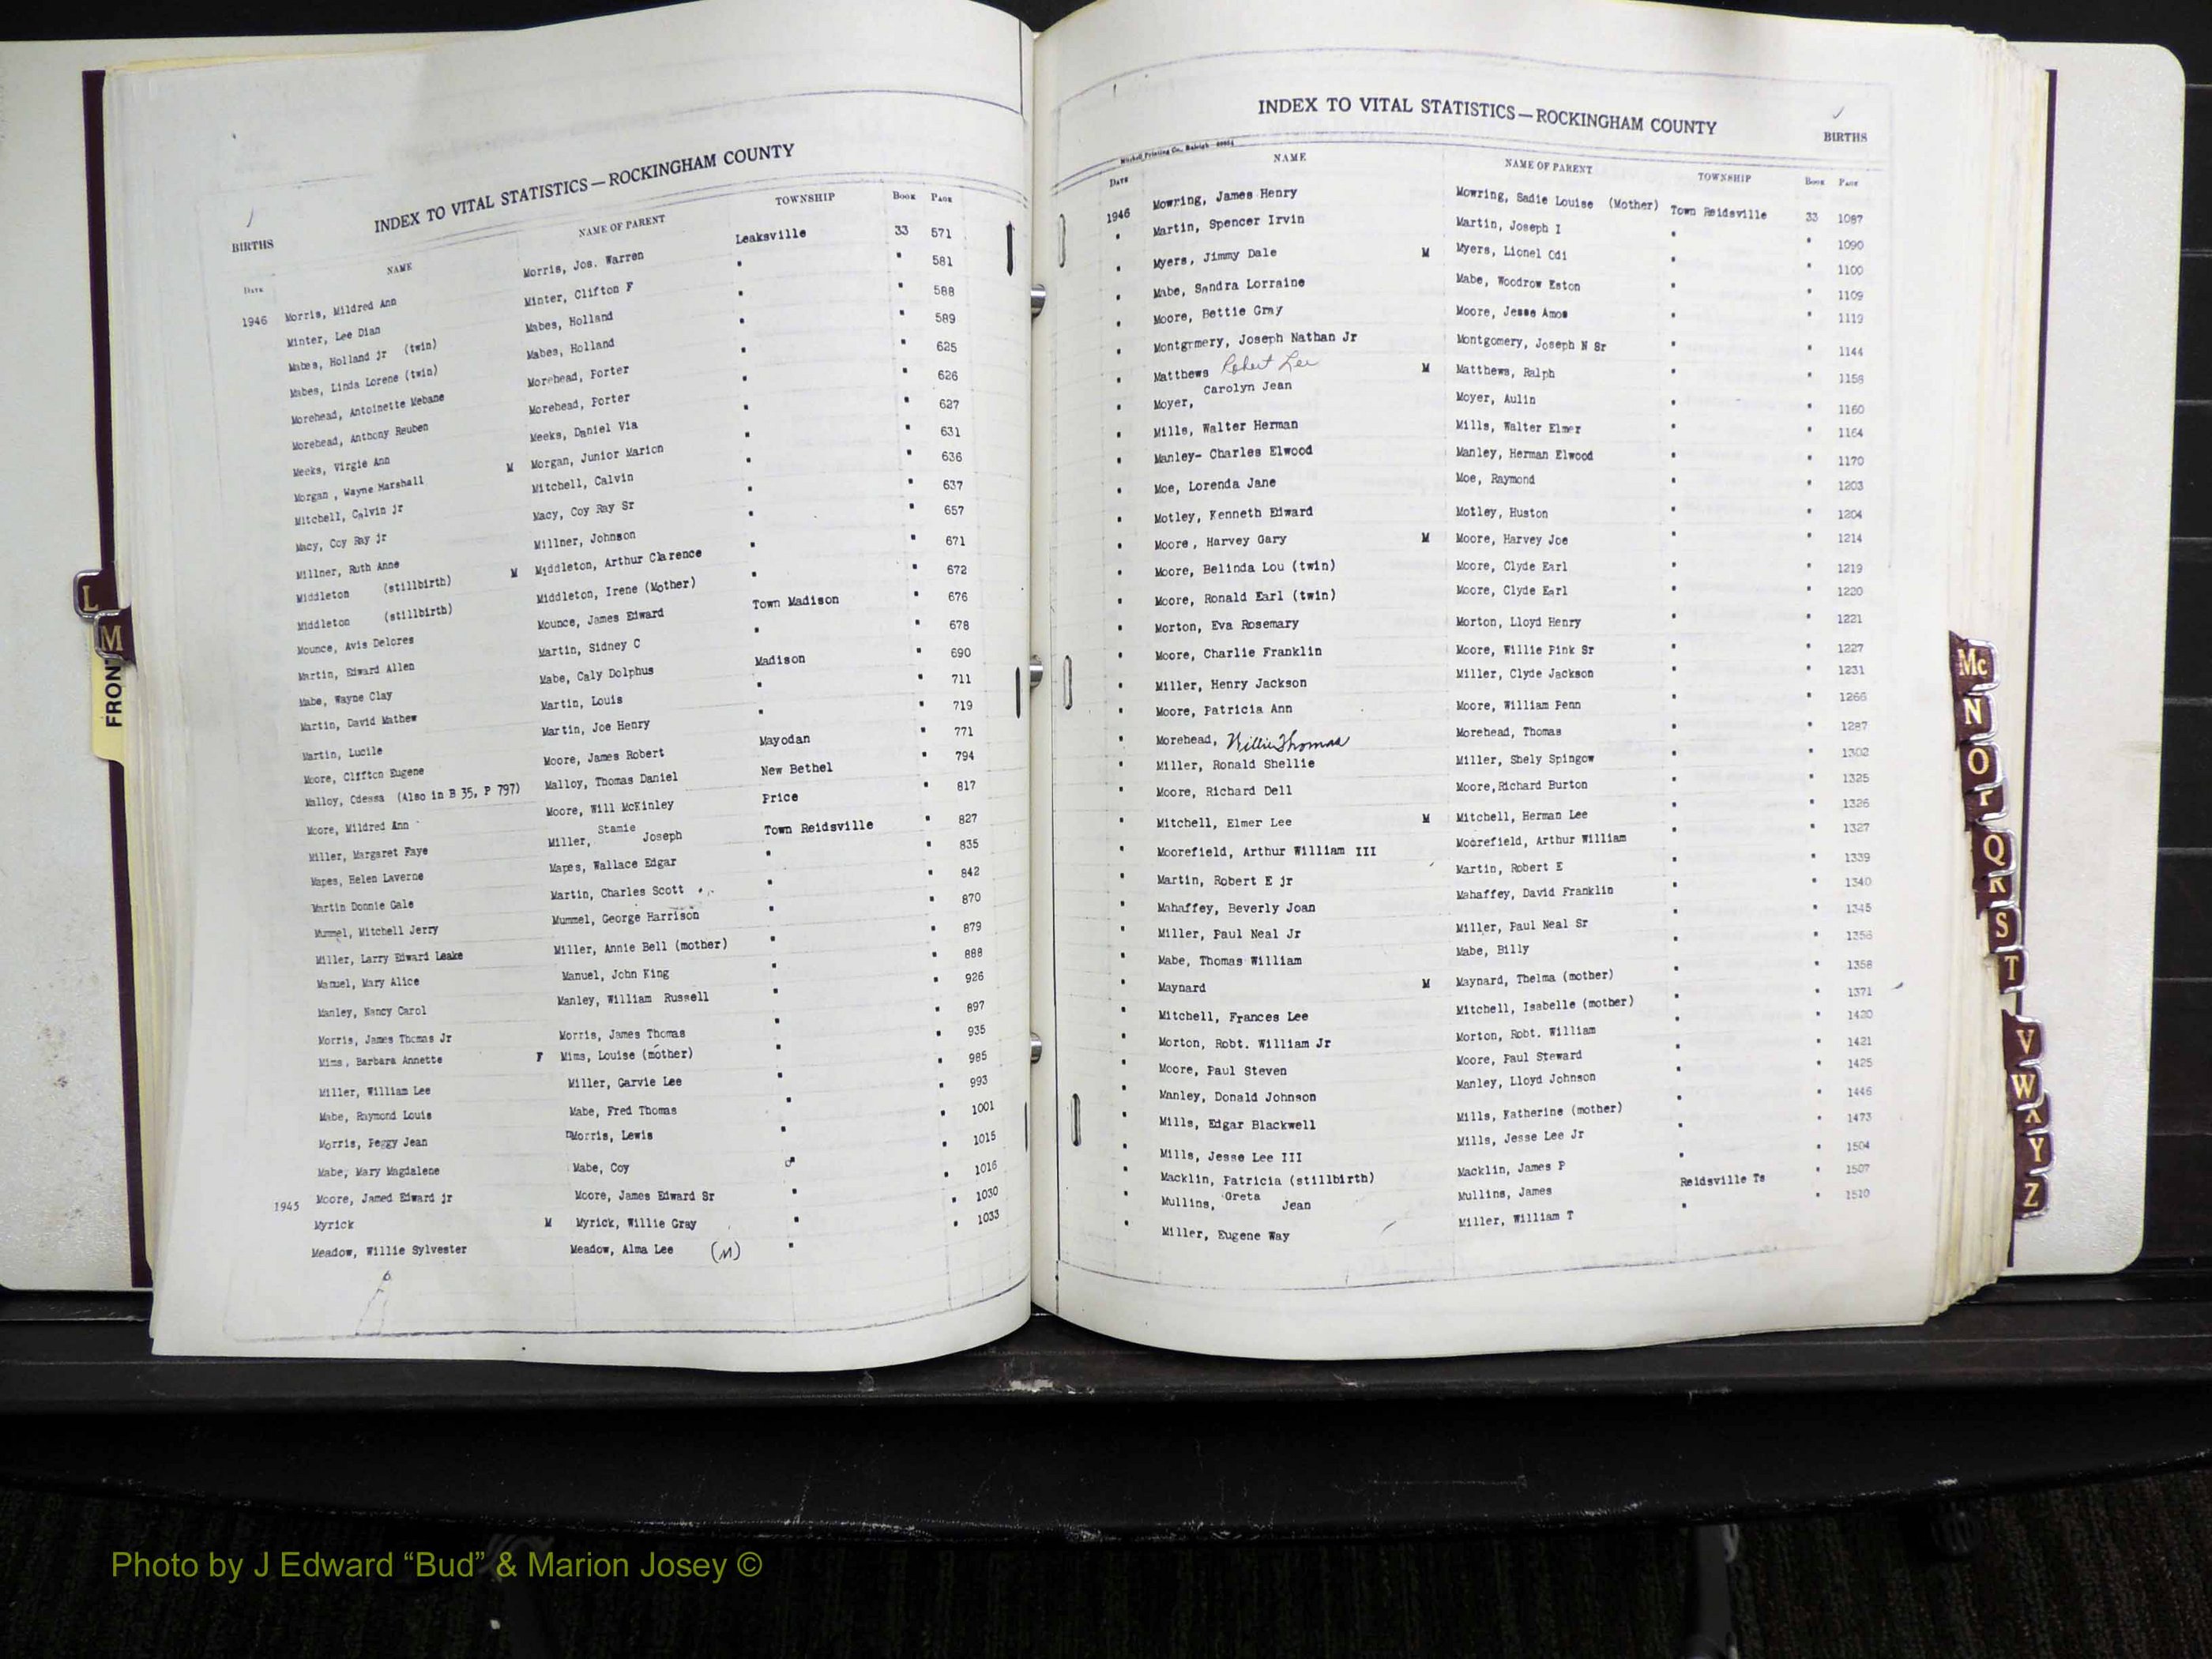 INDEX TO VITAL STATISTICS—ROCKINGHAM COUNTY
BIRTHS
DATE NAME NAME OF PARENT TOWNSHIP BOOK PAGE
1946 Morris, Mildred Ann Morris, Jos. Warren Leaksville 33 571
Minter, Lee Dian Minter, Clifton F " " 581
Mabes, Holland jr (twin) Mabes, Holland " " 588
Mabes, Linda Lorene (twin) Mabes, Holland " " 589
Morehead, Antoinette Mebane Morehead, Porter " " 625
Morehead, Anthony Reuben Morehead, Porter " " 626
Meeks, Virgie Ann Meeks, Daniel Via " " 627
Morgan , Wayne Marshall M Morgan, Junior Marion " " 631
Mitchell, Calvin jr Mitchell, Calvin " " 636
Macy, Coy Ray jr Macy, Coy Ray Sr " " 637
Millner, Ruth Anne Millner, Johnson " " 657
Middleton (stillbirth) M Middleton, Arthur Clarence " " 671
Middleton (stillbirth) Middleton, Irene (Mother) " " 672
Mounce, Avis Delores Mounce, James Edward Town Madison " 676
Martin, Edward Allen Martin, Sidney C " " 678
Mabe, Wayne Clay Mabe, Caly Dolphus Madison " 690
Martin, David Mathew Martin, Louis " " 711
Martin, Lucile Martin, Joe Henry " " 719
Moore, Clifton Eugene Moore, James Robert Mayodan " 771
Malloy, Odessa (Also in B 35, P 797) Malloy, Thomas Daniel New Bethel " 794
Moore, Mildred Ann Moore, Will McKinley Price " 817
Miller, Margaret Faye Miller, Stamie Joseph Town Reidsville " 827
Mapes, Helen Laverne Mapes, Wallace Edgar " " 835
Martin Donnie Gale Martin, Charles Scott " " 842
Mummel, Mitchell Jerry Mummel, George Harrison " " 870
Miller, Larry Edward Leake Miller, Annie Bell (mother) " " 879
Manuel, Mary Alice Manuel, John King " " 888
Manley, Nancy Carol Manley, William Russell " " 926
Morris, James Thomas Jr Morris, James Thomas " " 897
Mims, Barbara Annette F Mims, Louise (mother) " " 935
Miller, William Lee Miller, Garvie Lee " " 985
Mabe, Raymond Louis Mabe, Fred Thomas " " 993
Morris, Peggy Jean Morris, Lewis " " 1001
Mabe, Mary Magdalene Mabe, Coy " " 1015
1945 Moore, Jamed Edward jr Moore, James Edward Sr " " 1016
Myrick M Myrick, Willie Gray " " 1030
Meadow, Willie Sylvester Meadow, Alma Lee (M) " " 1033
INDEX TO VITAL STATISTICS—ROCKINGHAM COUNTY
BIRTHS
Mitchell Printing Co., Raleigh
DATE NAME NAME OF PARENT TOWNSHIP BOOK PAGE
1946 Mowring, James Henry Mowring, Sadie Louise (Mother) Town Reidsville 33 1087
" Martin, Spencer Irvin Martin, Joseph I " " 1090
" Myers, Jimmy Dale M Myers, Lionel Odi " " 1100
" Mabe, Sandra Lorraine Mabe, Woodrow Eston " " 1109
" Moore, Bettie Gray Moore, Jesse Amos " " 1119
" Montgrmery, Joseph Nathan Jr Montgomery, Joseph N Sr " " 1144
" Matthews Robert Lee M Matthews, Ralph " " 1156
" Moyer, Carolyn Jean Moyer, Aulin " " 1160
" Mills, Walter Herman Mills, Walter Elmer " " 1164
" Manley- Charles Elwood Manley, Herman Elwood " " 1170
" Moe, Lorenda Jane Moe, Raymond " " 1203
" Motley, Kenneth Edward Motley, Huston " " 1204
" Moore, Harvey Gary M Moore, Harvey Joe " " 1214
" Moore, Belinda Lou (twin) Moore, Clyde Earl " " 1219
" Moore, Ronald Earl (twin) Moore, Clyde Earl " " 1220
" Morton, Eva Rosemary Morton, Lloyd Henry " " 1221
" Moore, Charlie Franklin Moore, Willie Pink Sr " " 1227
" Miller, Henry Jackson Miller, Clyde Jackson " " 1231
" Moore, Patricia Ann Moore, William Penn " " 1266
" Morehead, Willie Thomas Morehead, Thomas " " 1287
" Miller, Ronald Shellie Miller, Shely Spingow " " 1302
" Moore, Richard Dell Moore,Richard Burton " " 1325
" Mitchell, Elmer Lee M Mitchell, Herman Lee " " 1326
" Moorefield, Arthur William III Moorefield, Arthur William " " 1327
" Martin, Robert E jr Martin, Robert E " " 1339
" Mahaffey, Beverly Joan Mahaffey, David Franklin " " 1340
" Miller, Paul Neal Jr Miller, Paul Neal Sr " " 1345
" Mabe, Thomas William Mabe, Billy " " 1356
" Maynard M Maynard, Thelma (mother) " " 1358
" Mitchell, Frances Lee Mitchell, Isabelle (mother) " " 1371
" Morton, Robt. William Jr Morton, Robt. William " " 1420
" Moore, Paul Steven Moore, Paul Steward " " 1421
" Manley, Donald Johnson Manley, Lloyd Johnson " " 1425
" Mills, Edgar Blackwell Mills, Katherine (mother) " " 1446
" Mills, Jesse Lee III Mills, Jesse Lee Jr " " 1473
" Macklin, Patricia (stillbirth) Macklin, James P " " 1504
" Mullins, Greta Jean Mullins, James Reidsville Ts " 1507
" Miller, Eugene Way Miller, William T " " 1510
L
M
FRON
Mc
N
O
Q
R
S
T
V
W
Y
Z
Photo by J Edward “Bud” & Marion Josey ©